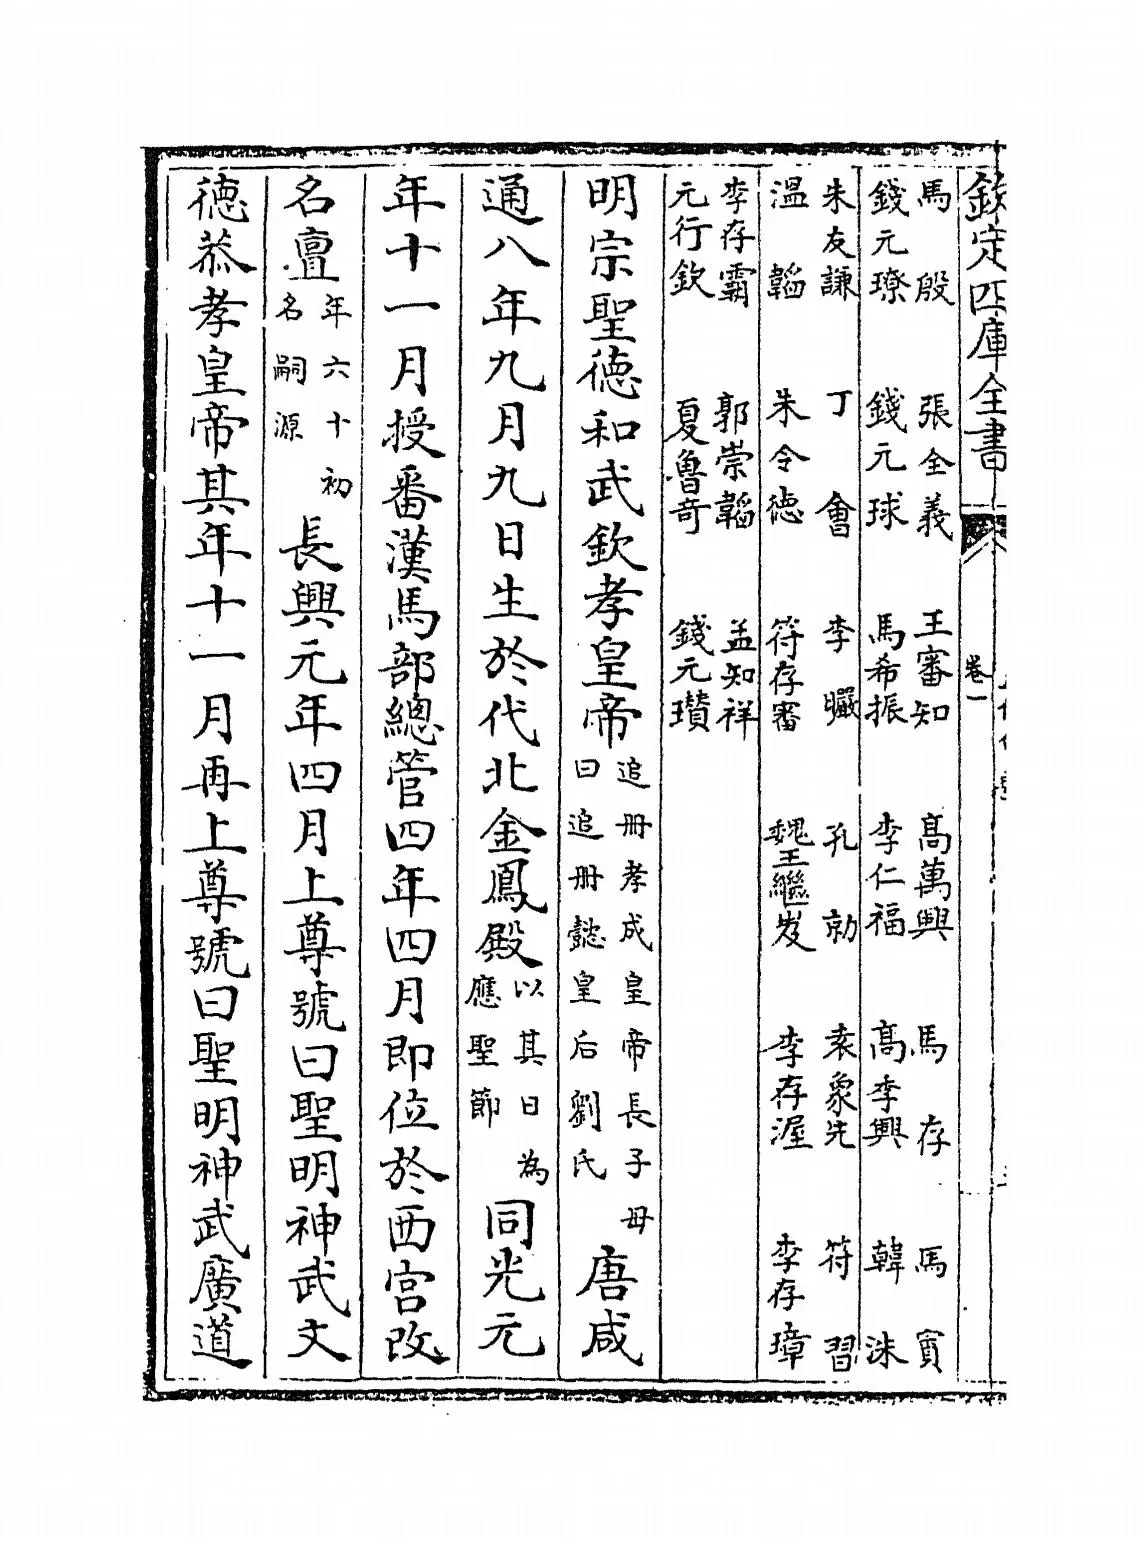 欽定四庫全書
卷一
馬殷　張全義　王審知　高萬興　馬存　馬賨
錢元璙　錢元球　馬希振　李仁福　高季興　韓洙
朱友謙　丁會　李曮　孔勍　袁象先　符習
溫韜　朱令德　符存審　魏王繼岌　李存渥　李存璋
李存霸　郭崇韜　孟知祥
元行欽　夏魯奇　錢元瓚
明宗聖德和武欽孝皇帝追册孝成皇帝長子母曰追册懿皇后劉氏唐咸
通八年九月九日生於代北金鳳殿以其日為應聖節同光元
年十一月授番漢馬部總管四年四月即位於西宮改
名亶年六十初名嗣源長興元年四月上尊號曰聖明神武文
德恭孝皇帝其年十一月再上尊號曰聖明神武廣道